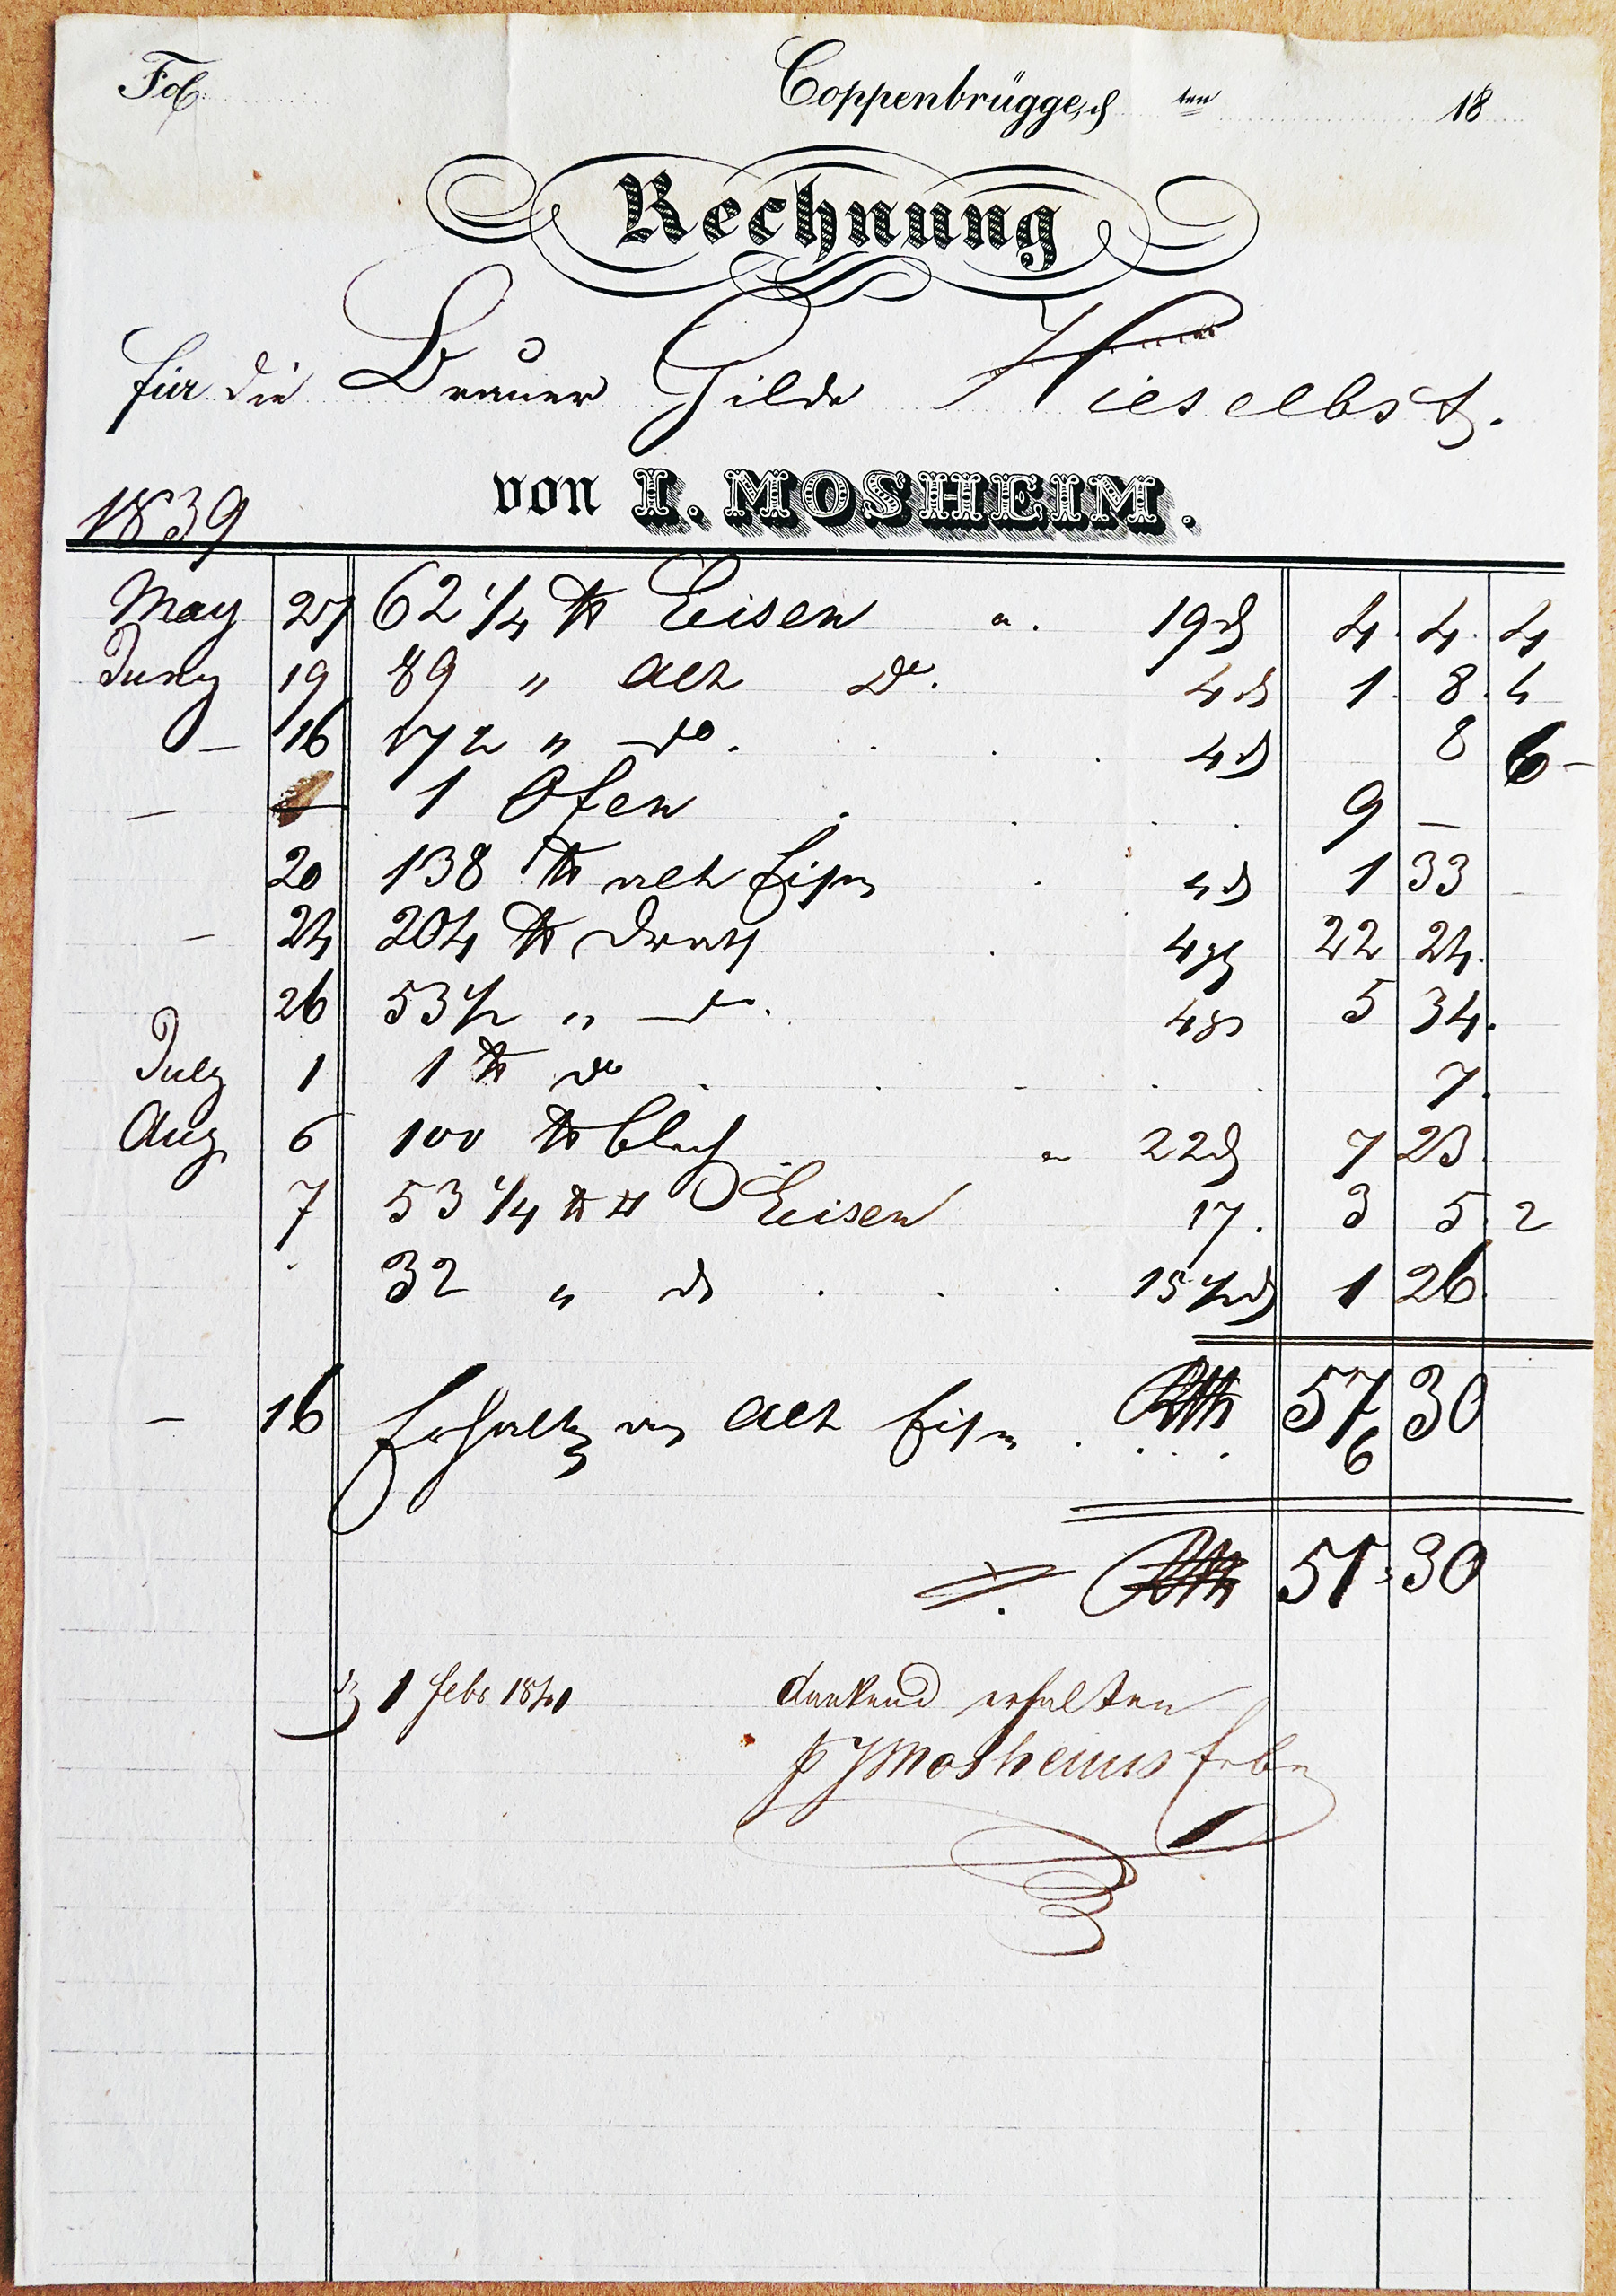 Fol. Coppenbrügge, d ten 18
Rechnung
für die Brauer Gilde Hieselbst.
von I. MOSHEIM.
1839
May 27 62 1/4 ℔ Eisen a. 19 d 4. 4. 4
Juny 19 89 " alt do. 4 d 1. 8. 4
— 16 " do. 4 d 8 6 —
— 1 Ofen 9 —
20 138 ℔ alt Eisen 4 d 1 33
— 24 204 ℔ Drath 4 22 24.
26 53 1/2 " do. 4 5 34.
July 1 1 ℔ do 7.
Aug 6 100 ℔ Blech a 22 d 7 23.
7 53 1/4 ℔ Eisen 17. 3 5. 2
32 " do 15 1/2 d 1 26.
— 16 57 30
Erhalten an alt Eisen 6
51 30
d 1 Febr 1840 dankend erhalten
J Mosheims Erben